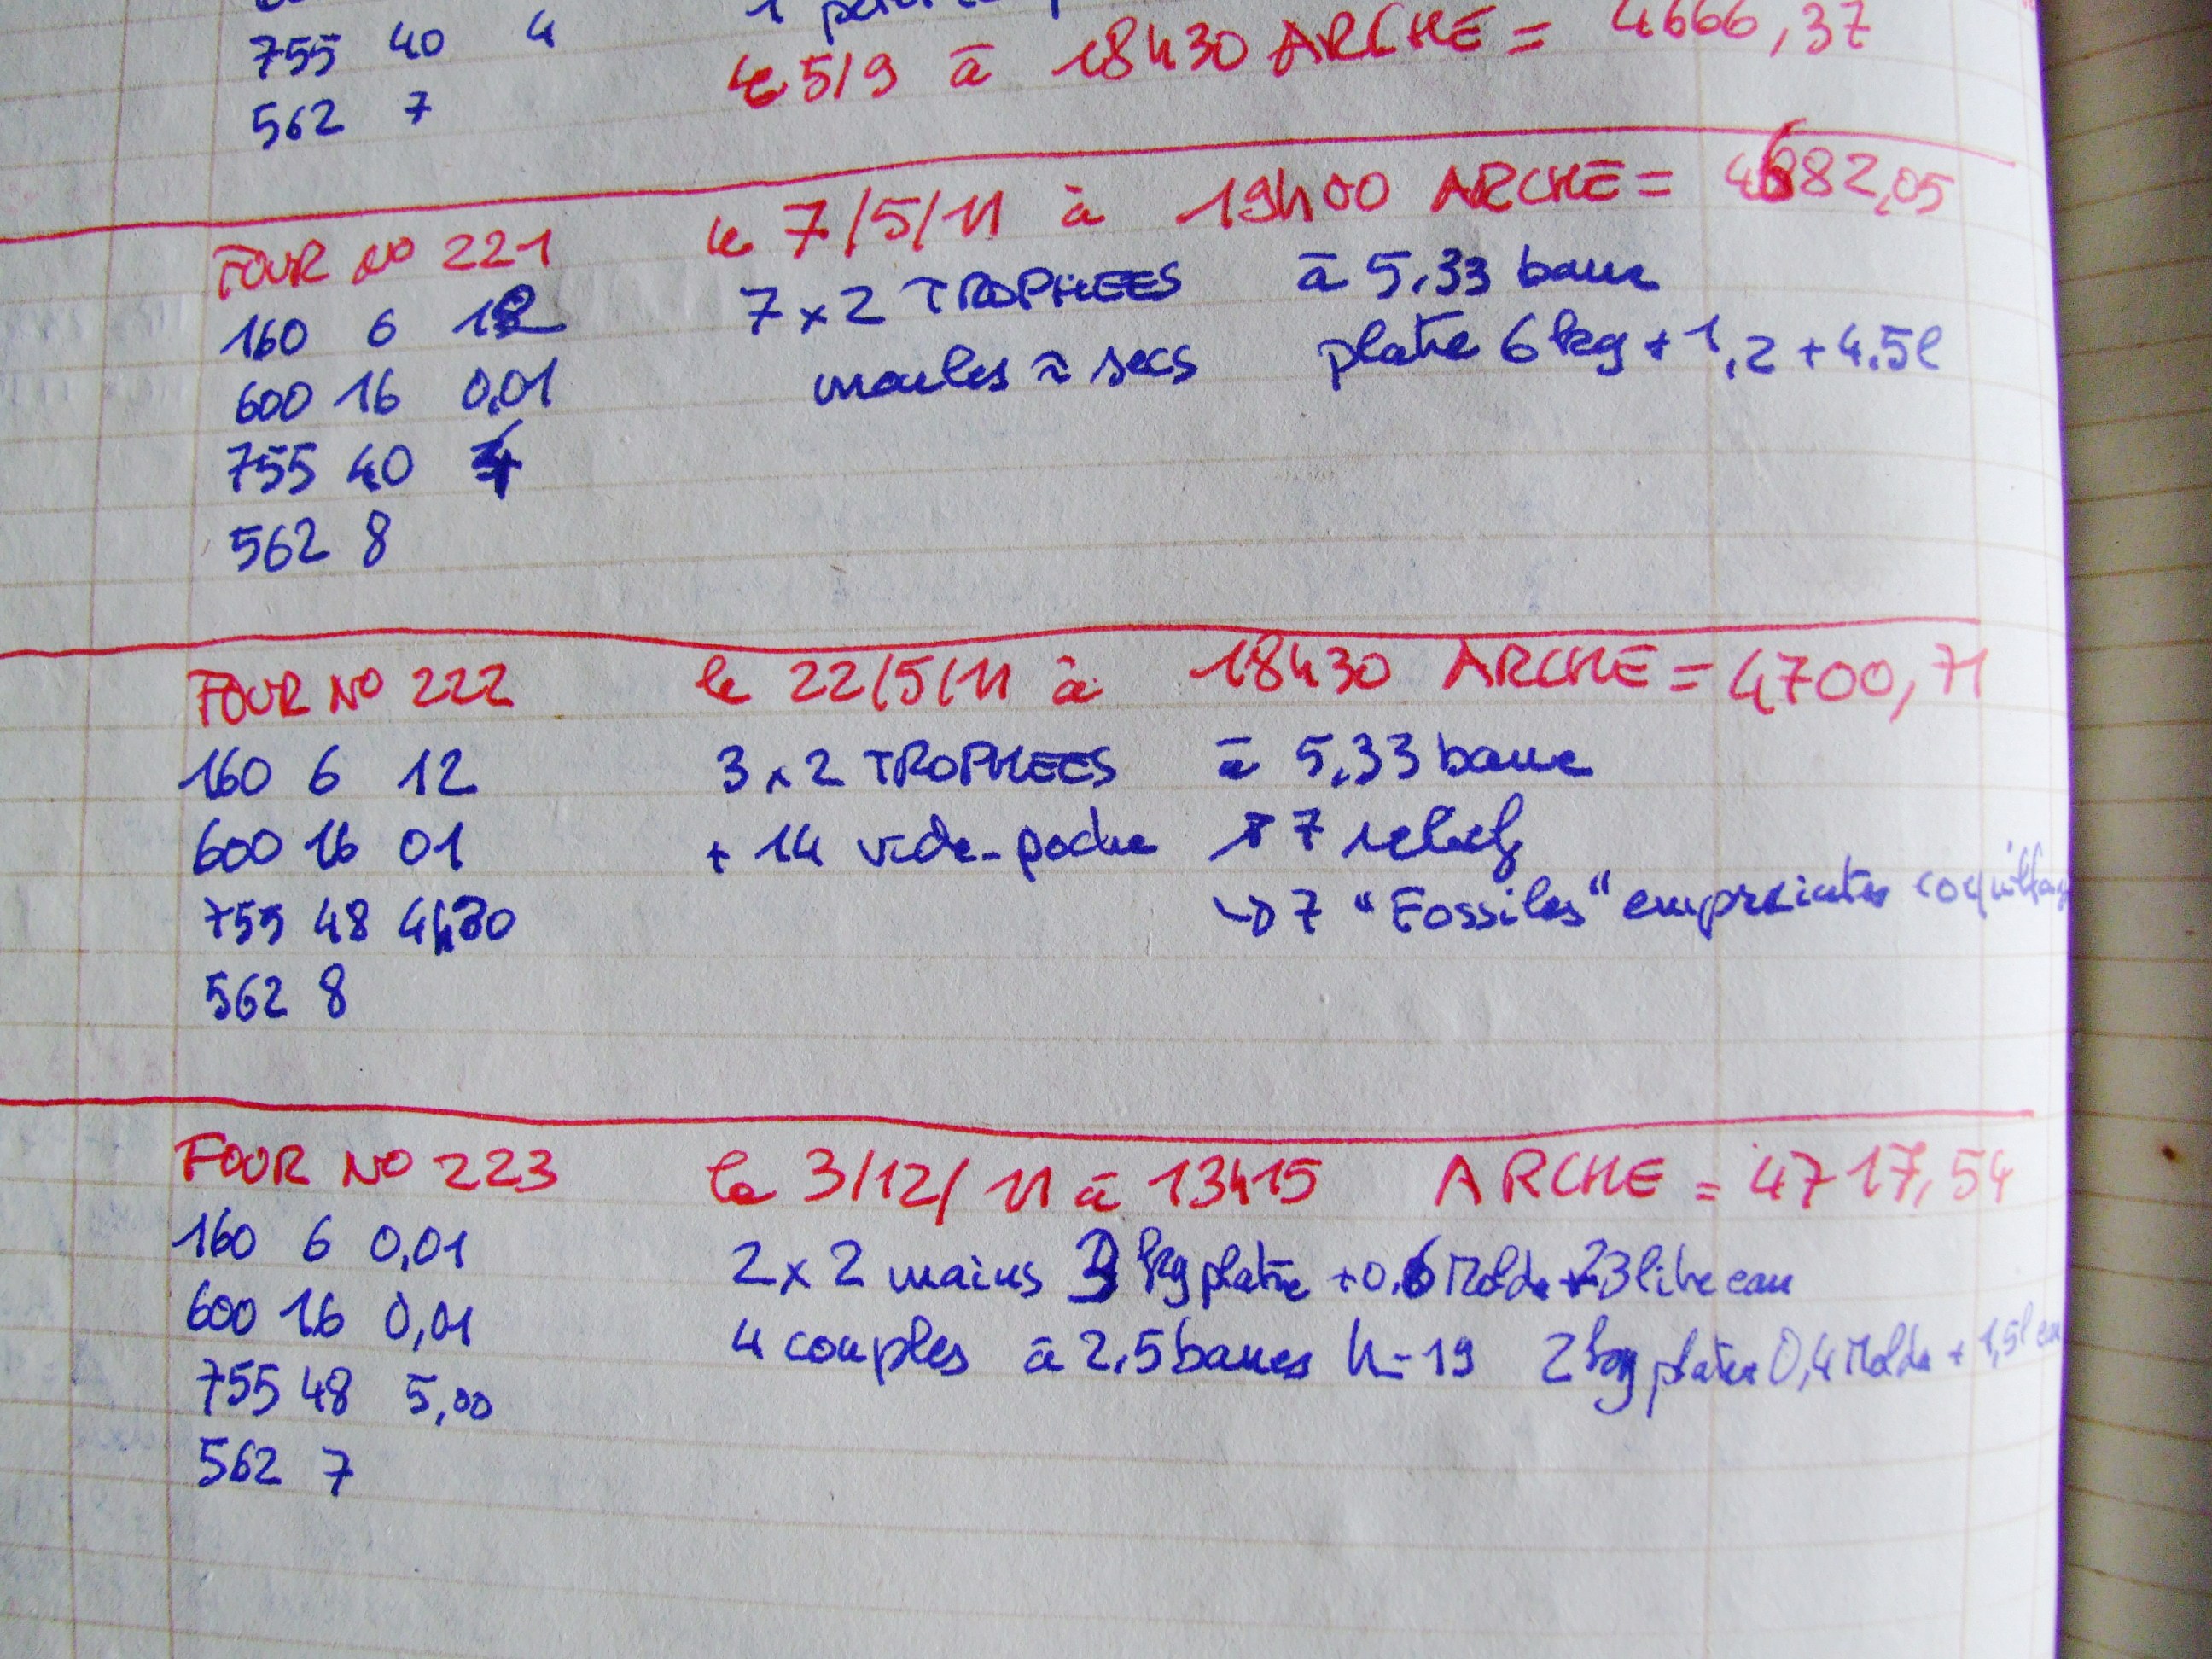 755 40 4
le 5/9 à 18h30 ARCHE = 4666,37
562 7
FOUR NO 221 le 7/5/11 à 19h00 ARCHE = 4682,05
160 6 12 7 x 2 TROPHEES à 5,33 barre
600 16 0,01 moules ≈ secs platre 6 kg + 1,2 + 4.5l
755 40 4
562 8
FOUR NO 222 le 22/5/11 à 18h30 ARCHE = 4700,71
160 6 12 3 x 2 TROPHEES à 5,33 barre
600 16 01 + 14 vide-poche 7 reliefs
755 48 4h30 → 7 "Fossiles" empreintes coquillages
562 8
FOUR NO 223 le 3/12/11 à 13h15 ARCHE = 4717,54
160 6 0,01 2 x 2 mains 3 kg platre + 0.6 Molda + 23 litre eau
600 16 0,01 4 couples à 2,5 barres h=19 2 kg platre 0,4 Molda + 1,5l eau
755 48 5,00
562 7